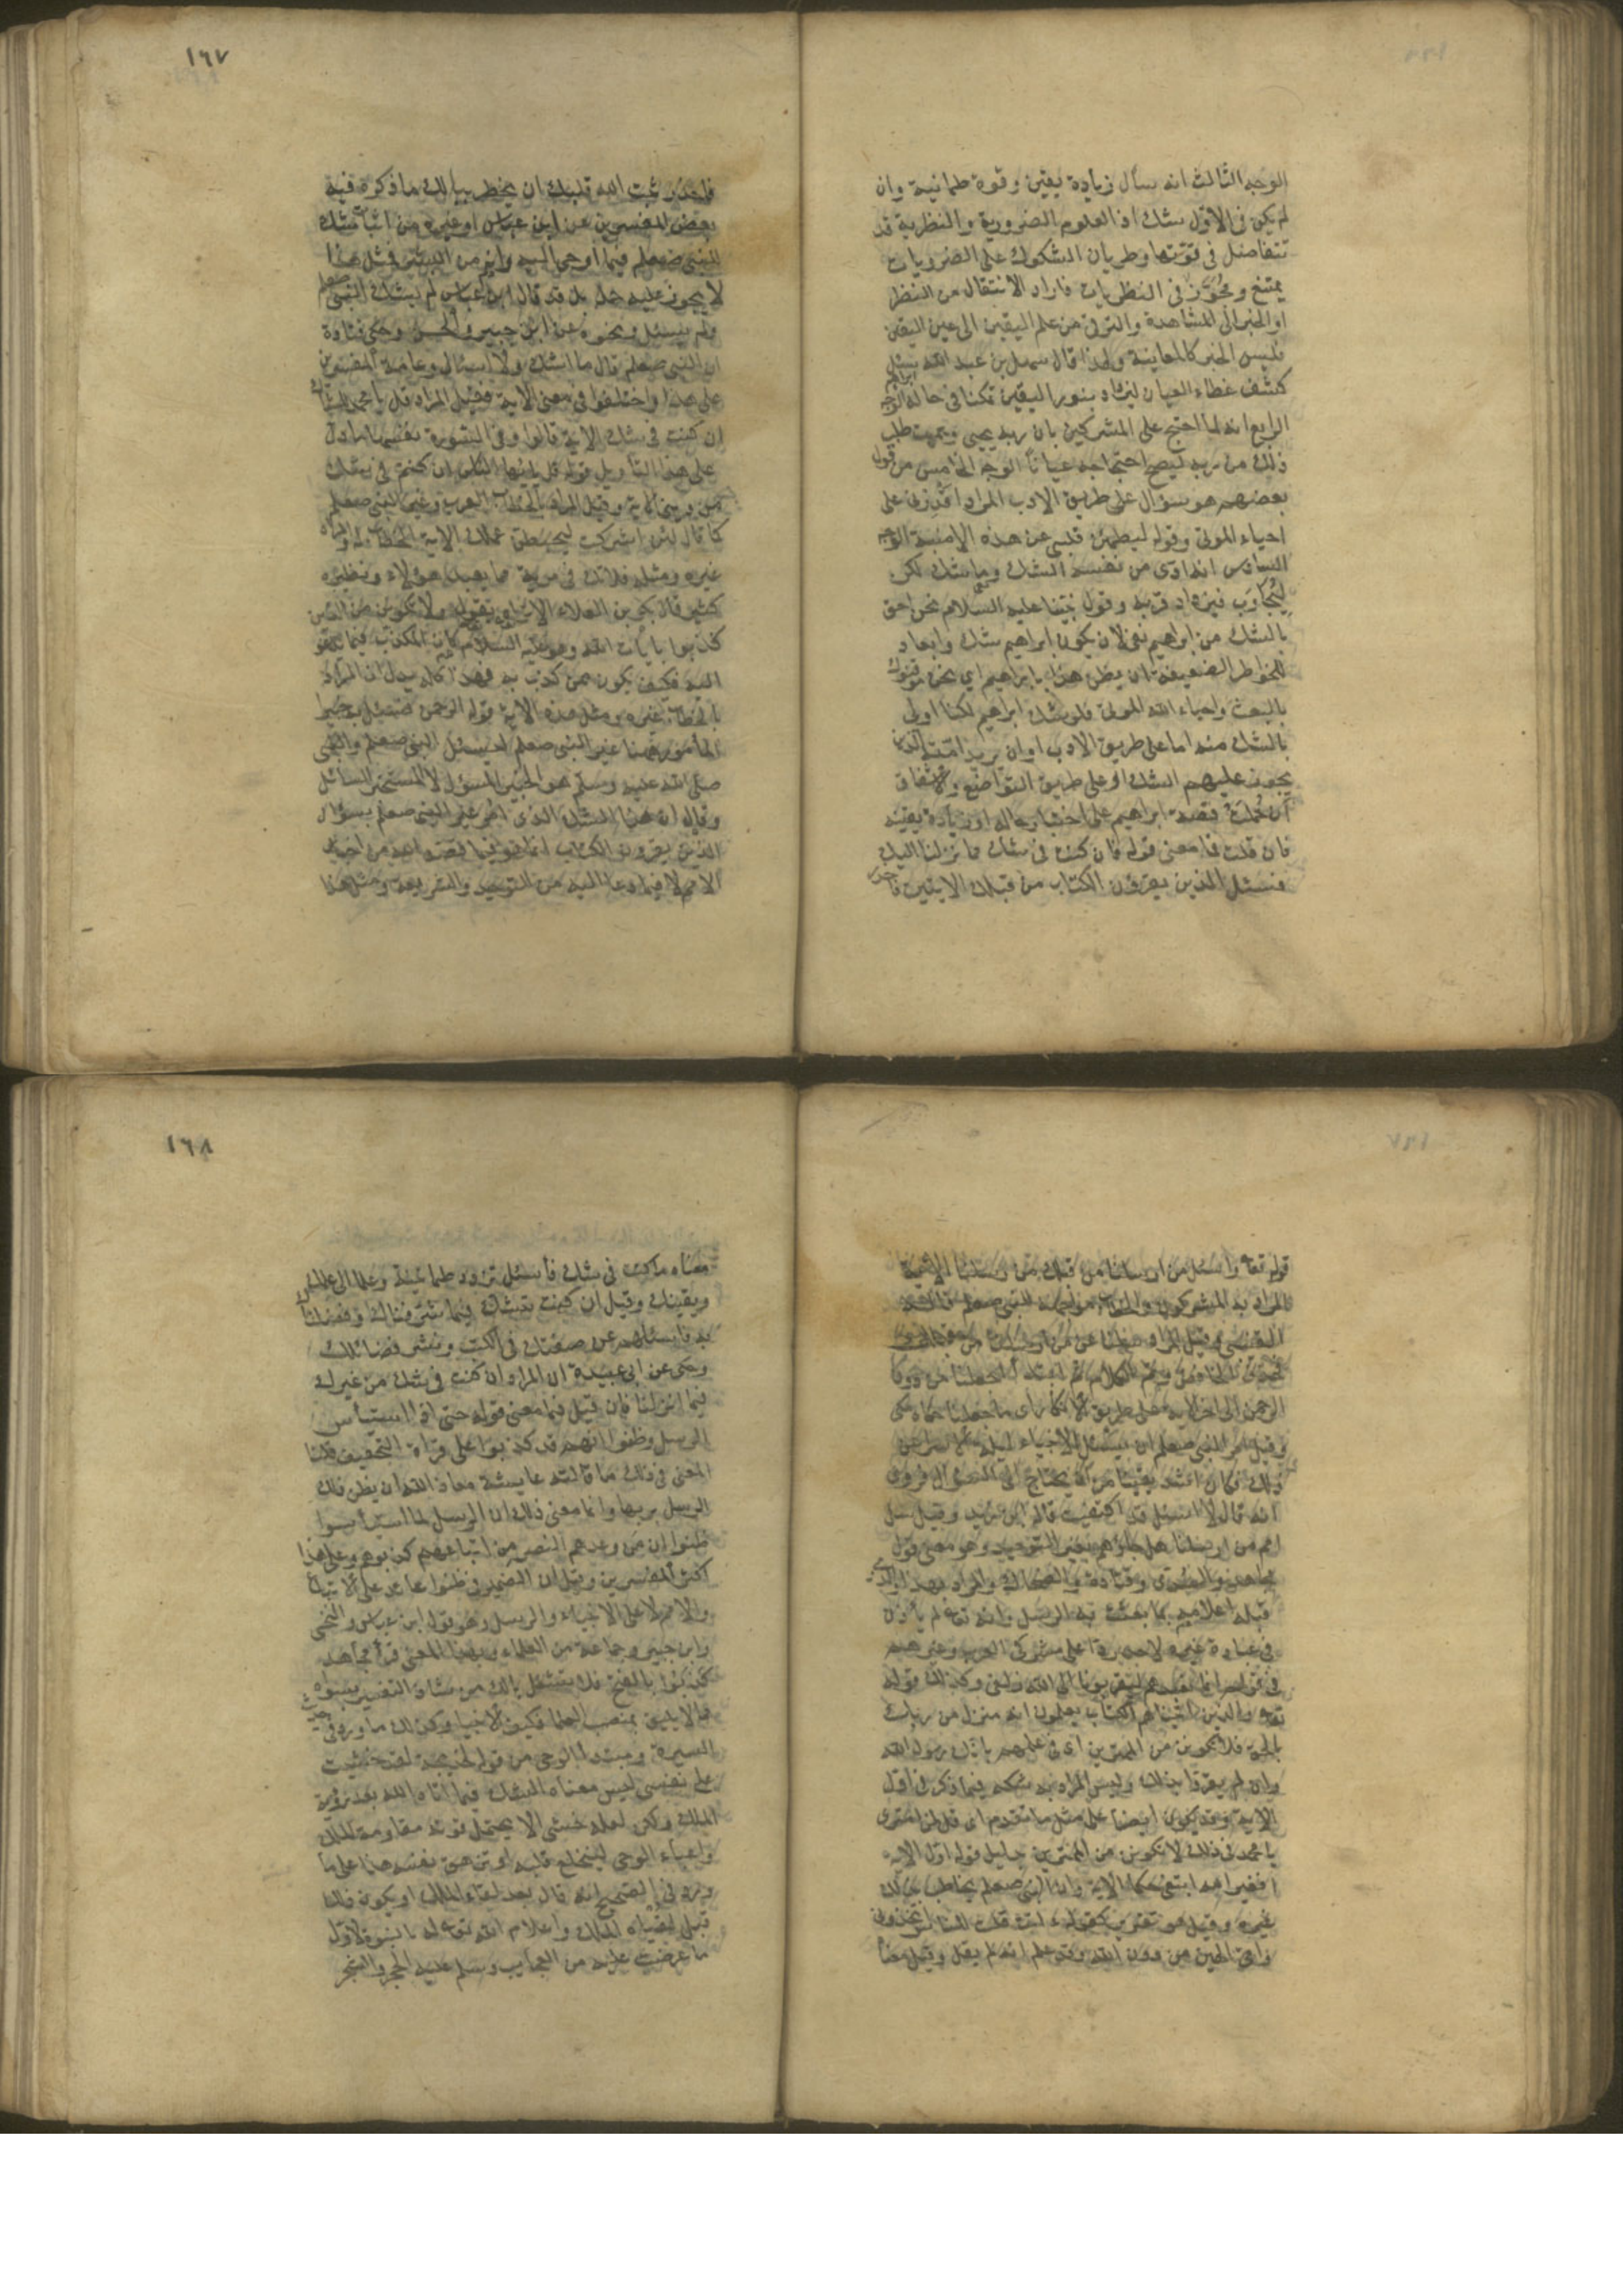 الوجه الثالث انه سأل زيادة يقين وقوة طمانية وان
لم يكن فى الأول شك اذ العلوم الضرورية والنظرية قد
تتفاضل فى قوتها وطريان الشكوك على الضروريات
ممتنع ومجوز فى النظريات فاراد الانتقال من النظر
او الخبر الى المشاهدة والترقى من علم اليقين الى عين اليقين
فليس الخبر كالمعاينة ولهذا قال سهل بن عبد الله سئل
كشف غطاء العيان ليزداد بنور اليقين تمكنا فى حاله الوجه
الرابع انه لما احتج على المشركين بان ربه يحيى ويميت طلب
ذلك من ربه ليصح احتجاجه عيانا الوجه الخامس من قول
بعضهم هو سؤال على طريق الادب المراد اقدرنى على
احياء الموتى وقوله ليطمئن قلبى عن هذه الامنية الوجه
السادس انه ارى من نفسه الشك وما شك لكن
ليجاوب فيزداد قربه وقول نبينا عليه السلام نحن احق
بالشك من ابراهيم نفى لان يكون ابراهيم شك وابعاد
للخواطر الضعيفة ان يظن هذا بابراهيم اى نحن موقنون
بالبعث واحياء الله الموتى فلو شك ابراهيم لكنا اولى
بالشك منه اما على طريق الادب او ان يريد امته الذين
يجوز عليهم الشك او على طريق التواضع والاشفاق
ان حملت قصة ابراهيم على اختبار حاله او زيادة يقينه
فان قلت فما معنى قوله فان كنت فى شك مما نزلنا اليك
فسئل الذين يقرؤن الكتاب من قبلك الايتين فاحذر
١٦٧
فاحذر ثبت الله قلبك ان يخطر ببالك ما ذكره فيه
بعض المفسرين عن ابن عباس او غيره من اثبات شك
للنبى صعلم فيما اوحى اليه وانه من البشر فمثل هذا
لا يجوز عليه جملة بل قد قال ابن عباس لم يشك النبى صعلم
ولم يسئل ونحوه عن ابن جبير والحسن وحكى قتادة
ان النبى صعلم قال ما اشك ولا اسئال وعامة المفسرين
على هذا واختلفوا فى معنى الاية فقيل المراد قل يا محمد للشاك
ان كنت فى شك الاية قالوا وفى السورة نفسها ما دل
على هذا التأويل قوله قل يا ايها الناس ان كنتم فى شك
من دينى الاية وقيل المراد بالخطاب العرب وغير النبى صعلم
كما قال لئن اشركت ليحبطن عملك الاية الخطاب له والمراد
غيره ومثله فلا تك فى مرية مما يعبد هؤلاء ونظيره
كثير قال بكر بن العلاء الا تراه يقول ولا تكونن من الذين
كذبوا بايات الله وهو عليه السلام كان المكذب فيما يدعو
اليه فكيف يكون ممن كذب به فهذا كله يدل ان المراد
بالخطاب غيره ومثل هذه الاية قوله الرحمن فسئل به خبيرا
المأمور ههنا غير النبى صعلم ليسئل النبى صعلم والنبى
صلى الله عليه وسلم هو الخبير المسؤل لا المستخبر السائل
وقال ان هذا الشك الذى امر غير النبى صعلم بسؤال
الذين يقرؤن الكتاب انما هو فيما قصه الله من اخبار
الامم لا فيما دعا اليه من التوحيد والشريعة ومثل هذا
قوله تعا واسئل من ارسلنا من قبلك من رسلنا الاية
المراد به المشركون والخطاب مواجهة للنبى صعلم قاله
ثم ابتدأ اجعلنا من دون
الرحمن الى اخر الاية على طريق الانكار اى ما جعلنا حكاه مكى
وقيل امر النبى صعلم ان يسئل الانبياء ليلة الاسراء عن
ذلك فكان اشد يقينا من ان يحتاج الى السؤال فروى
انه قال لا اسئل قد اكتفيت قاله ابن زيد وقيل سل
امم من ارسلنا هل جاؤهم بغير التوحيد وهو معنى قول
مجاهد والسدى وقتادة والضحاك والمراد بهذا والذى
قبله اعلامه بما بعثت به الرسل وانه تعا لم يأذن
فى عبادة غيره لاحد ردا على مشركى العرب وغيرهم
فى قولهم انما نعبدهم ليقربونا الى الله زلفى وكذلك قوله
تعا والذين اتيناهم الكتاب يعلمون انه منزل من ربك
بالحق فلا تكونن من الممترين اى فى علمهم بانك رسول الله
وان لم يقروا بذلك وليس المراد به شكه فيما ذكر فى اول
الاية وقد يكون ايضا على مثل ما تقدم اى قل لمن امترى
يا محمد فى ذلك لا تكونن من الممترين بدليل قوله اول الاية
افغير الله ابتغى حكما الاية وان النبى صعلم يخاطب بذلك
غيره وقيل هو تقرير كقوله ءانت قلت للناس اتخذونى
وامى الهين من دون الله وقد علم انه لم يقل وقيل معناه
١٦٨
معناه ما كنت فى شك فاسئل تزدد طمانينة وعلما الى علمك
ويقينك وقيل ان كنت تشك فيما شرفناك وفضلناك
به فاسئلهم عن صفتك فى الكتب ونشر فضائلك
وحكى عن ابى عبيدة ان المراد ان كنت فى شك من غيرك
فيما انزلنا فان قيل فما معنى قوله حتى اذا استيأس
الرسل وظنوا انهم قد كذبوا على قراة التخفيف قلنا
المعنى فى ذلك ما قالته عايشة معاذ الله ان يظن ذلك
الرسل بربها وانما معنى ذلك ان الرسل لما استيأسوا
ظنوا ان من وعدهم النصر من اتباعهم كذبوهم وعلى هذا
اكثر المفسرين وقيل ان الضمير فى ظنوا عائد على الاتباع
والامم لا على الانبياء والرسل وهو قول ابن عباس والنخعى
وابن جبير وجماعة من العلماء وبهذا المعنى قرأ مجاهد
كذبوا بالفتح فلا تشغل بالك من شاذ التفسير بسواه
مما لا يليق بمنصب العلما فكيف الانبيا وكذلك ما ورد فى حديث
السيرة ومبتدأ الوحى من قوله لخديجة لقد خشيت
على نفسى ليس معناه الشك فيما اتاه الله بعد رؤية
الملك ولكن لعله خشى الا يحتمل قوته مقاومة الملك
واعباء الوحى لينخلع قلبه او تزهق نفسه هذا على ما
ورد فى الصحيح انه قال بعد لقاء الملك او يكون ذلك
قبل لقياه الملك واعلام الله تعا له بالنبوة لاول
ما عرضت عليه من العجايب وسلم عليه الحجر والشجر